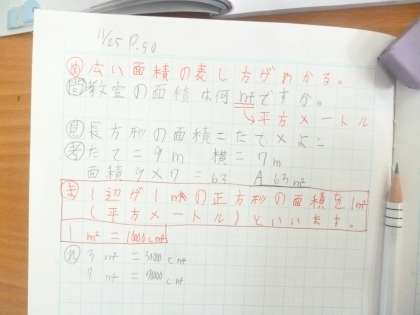 11/25 P.50
め 広い面積の表し方がわかる。
問 教室の面積は何m²ですか。
↳平方メートル
長方形の面積=たて×よこ
考 たて=9m 横=7m
面積 9×7=63 A 63m²
ま 1辺が1mの正方形の面積を1m²
(平方メートル)といいます。
1m²=10000cm²